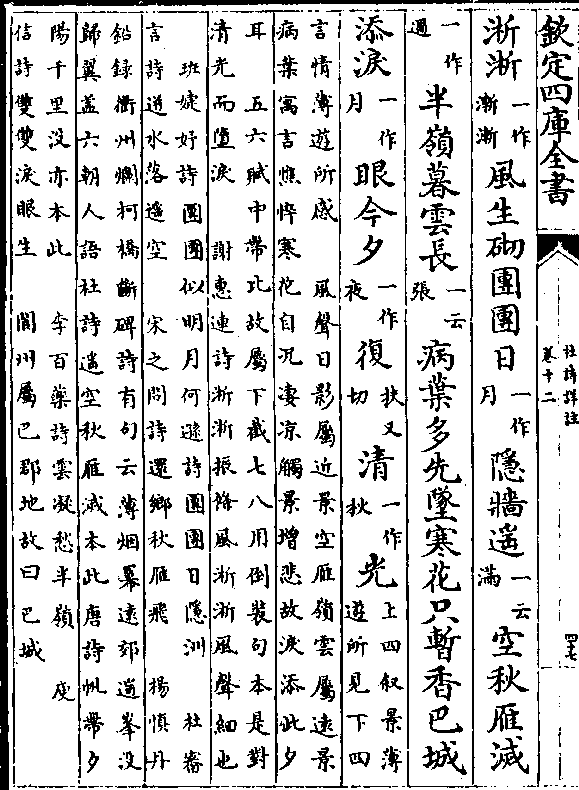 欽定四庫全書
杜詩詳註
卷十二
四七
淅淅一作漸漸風生砌團團日一作月隱牆遥一云滿空秋雁滅
一作過半嶺暮雲長一云張病葉多先墜寒花只暫香巴城
添淚一作月眼今夕一作夜復扶又切清一作秋光上四叙景薄遊所見下四
言情薄遊所感　風聲日影屬近景空雁嶺雲屬遠景
病葉寓言憔悴寒花自况凄凉觸景增悲故淚添此夕
耳　五六賦中帶比故屬下截七八用倒裝句本是對
清光而墮淚　謝惠連詩淅淅振條風淅淅風聲細也
班婕妤詩團團似明月何遜詩團團日隱洲　杜審
言詩道水落遥空　宋之問詩還鄉秋雁飛　楊慎丹
鉛録衢州爛柯橋斷碑詩有句云薄烟羃遠郊遥峯没
歸翼盖六朝人語杜詩遥空秋雁滅本此唐詩帆帶夕
陽千里没亦本此　李百藥詩雲凝愁半嶺　庾
信詩雙雙淚眼生　閬州屬巴郡地故曰巴城